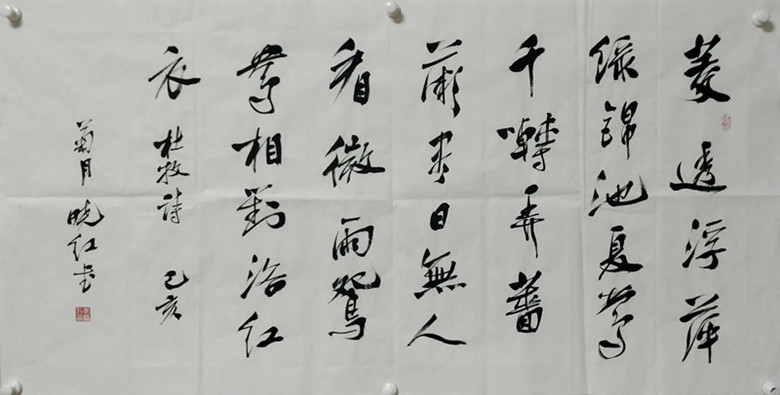 菱透浮萍
緑錦池夏鶯
千囀弄薔
薇盡日無人
看微雨鴛
鴦相對浴红
衣 杜牧詩 己亥
菊月 晓红书